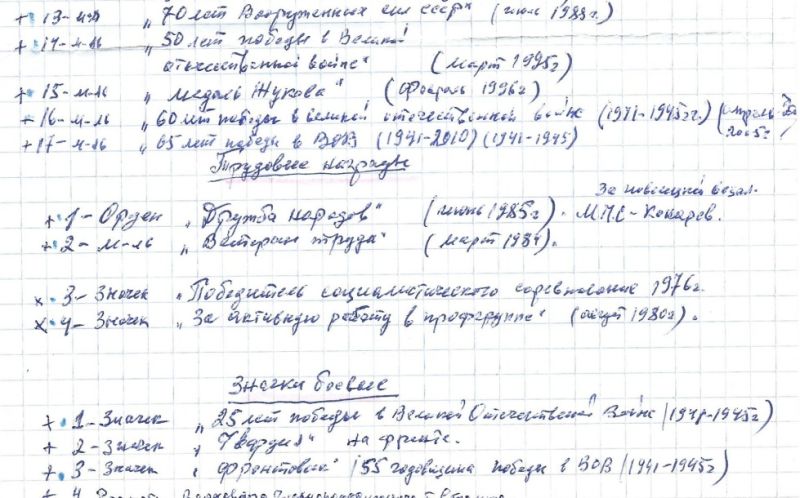 + 13-м-ль "70 лет Вооруженных сил СССР" (июль 1989г.)
+ 14-м-ль "50 лет победы в Великой
отечественной войне" (март 1995г)
+ 15-м-ль "медаль Жукова" (февраль 1996г)
+ 16-м-ль "60 лет победы в великой отечественной войне (1941-1945гг) (апрель 2005г.)
+ 17-м-ль "65 лет победы в ВОВ (1941-2010) (1941-1945)
Трудовые награды
За
+ 1-Орден "Дружба народов" (июнь 1985г). М.П.С-Конарев.
+ 2-м-ль "Ветеран труда" (март 1984).
х 3-Значек "Победитель социалистического соревнование 1976г.
х 4-Значек "За активную работу в профгруппе" (август 1980г).
Значки боевые
+ 1-Значек "25 лет победы в Великой Отечественной Войне (1941-1945г)
+ 2-Значек "Гвардия" на фронте.
+ 3-Значек "Фронтовик" (55 годовщина победы в ВОВ (1941-1945г)
+ 4